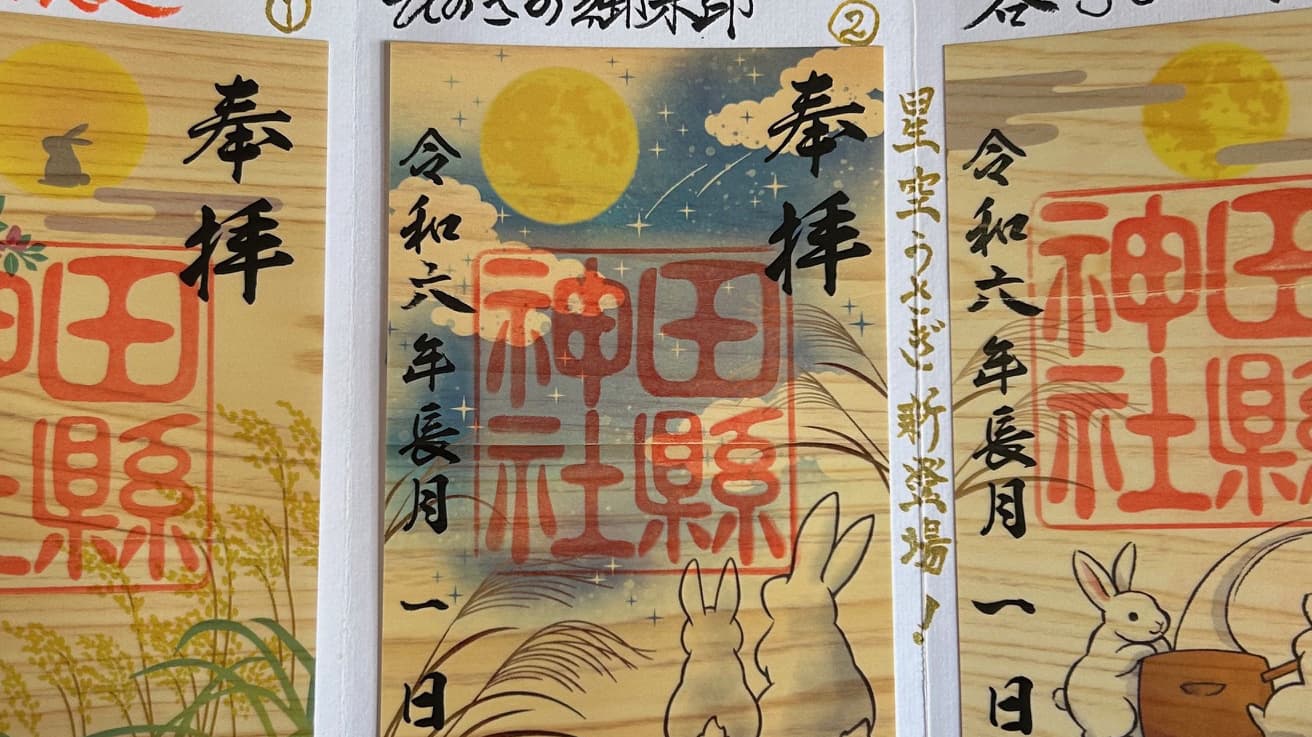 ①
奉拝
田縣
ひのきの御朱印
②
奉拝
田縣
神社
令和六年長月一日
星空うさぎ新登場!
田縣
神社
令和六年長月一日